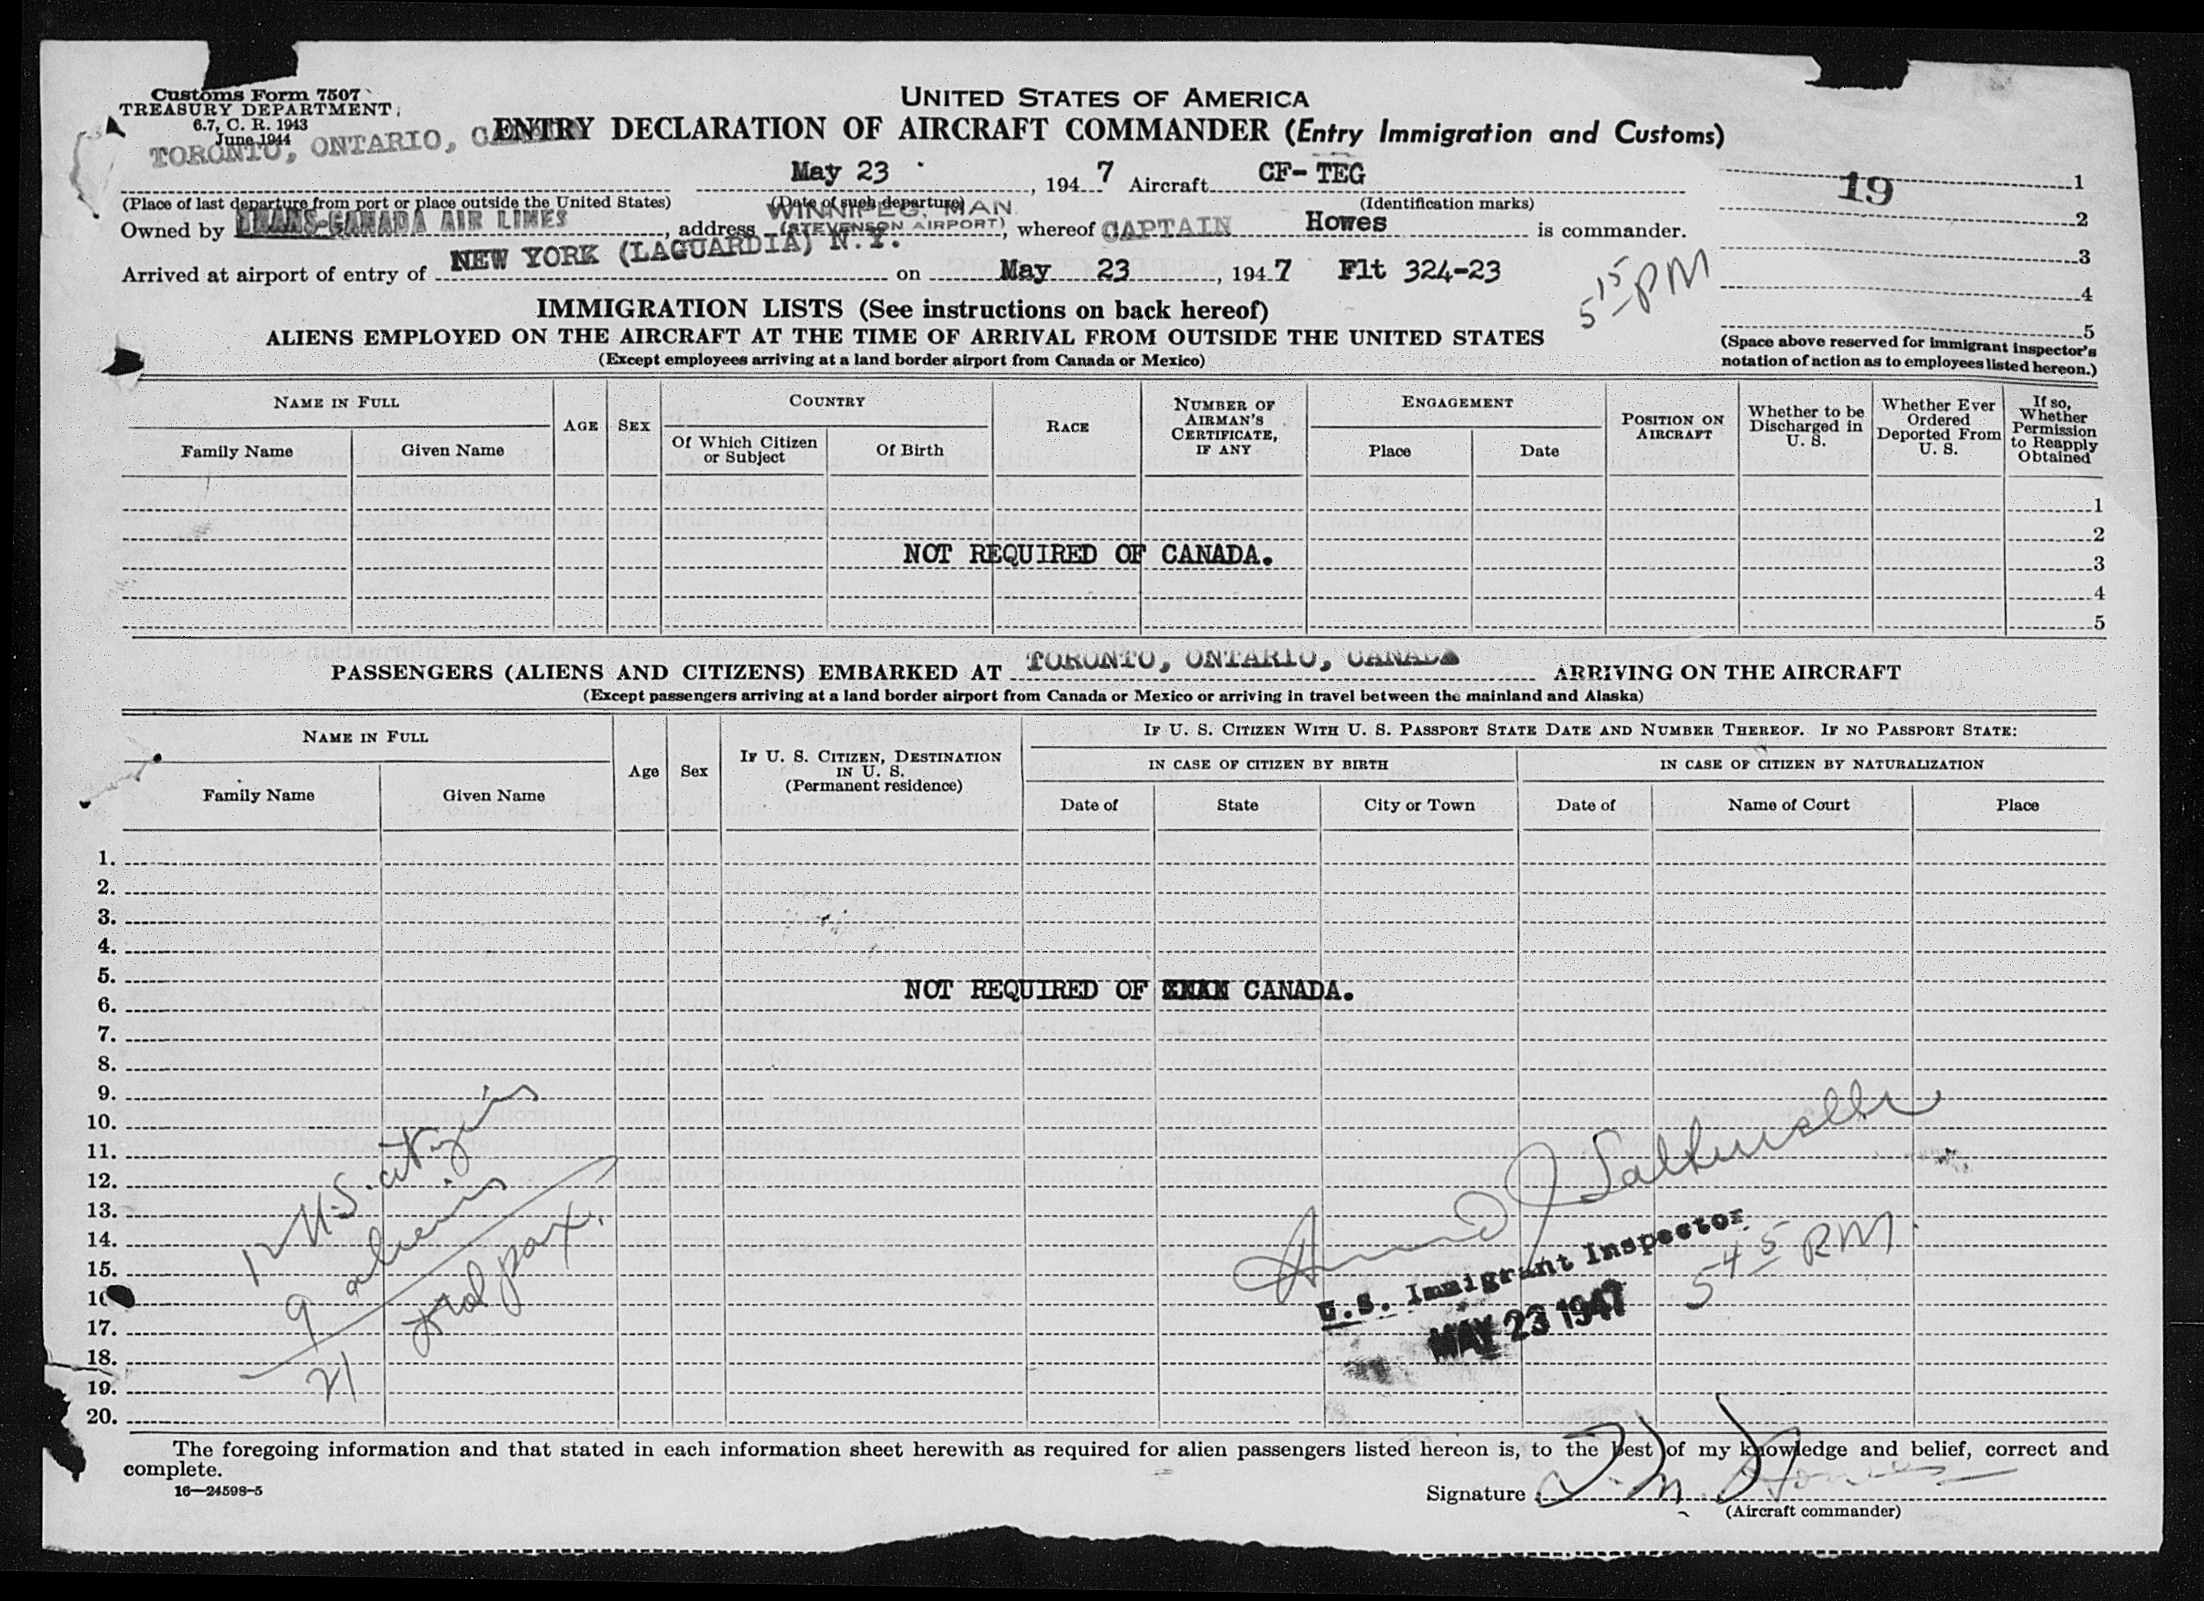 Customs Form 7507
TREASURY DEPARTMENT
6.7, C. R. 1943
June 1944
UNITED STATES OF AMERICA
ENTRY DECLARATION OF AIRCRAFT COMMANDER (Entry Immigration and Customs)
TORONTO, ONTARIO, CANADA May 23, 1947 Aircraft CF-TEG
(Place of last departure from port or place outside the United States) (Date of such departure) (Identification marks)
19
1
2
3
4
5
Owned by TRANS-CANADA AIR LINES, address WINNIPEG, MAN (STEVENSON AIRPORT), whereof CAPTAIN Howes is commander.
Arrived at airport of entry of NEW YORK (LAGUARDIA) N.Y. on May 23, 1947 Flt 324-23
5 15 PM
(Space above reserved for immigrant inspector's
notation of action as to employees listed hereon.)
IMMIGRATION LISTS (See instructions on back hereof)
ALIENS EMPLOYED ON THE AIRCRAFT AT THE TIME OF ARRIVAL FROM OUTSIDE THE UNITED STATES
(Except employees arriving at a land border airport from Canada or Mexico)
NAME IN FULL
Family Name
Given Name
AGE
SEX
COUNTRY
Of Which Citizen
or Subject
Of Birth
RACE
NUMBER OF
AIRMAN'S
CERTIFICATE,
IF ANY
ENGAGEMENT
Place
Date
POSITION ON
AIRCRAFT
Whether to be
Discharged in
U. S.
Whether Ever
Ordered
Deported From
U. S.
If so,
Whether
Permission
to Reapply
Obtained
1
2
NOT REQUIRED OF CANADA.
3
4
5
PASSENGERS (ALIENS AND CITIZENS) EMBARKED AT TORONTO, ONTARIO, CANADA ARRIVING ON THE AIRCRAFT
(Except passengers arriving at a land border airport from Canada or Mexico or arriving in travel between the mainland and Alaska)
NAME IN FULL
Family Name
Given Name
Age
Sex
IF U. S. CITIZEN, DESTINATION
IN U. S.
(Permanent residence)
IF U. S. CITIZEN WITH U. S. PASSPORT STATE DATE AND NUMBER THEREOF. IF NO PASSPORT STATE:
IN CASE OF CITIZEN BY BIRTH
IN CASE OF CITIZEN BY NATURALIZATION
Date of
State
City or Town
Date of
Name of Court
Place
1.
2.
3.
4.
5.
NOT REQUIRED OF CANADA.
6.
7.
8.
9.
10.
11.
12.
13.
14.
15.
16
17.
18.
19.
20.
12 U.S. citizens
9 aliens
21 total pax.
U.S. Immigrant Inspector
MAY 23 1947
5 45 PM.
The foregoing information and that stated in each information sheet herewith as required for alien passengers listed hereon is, to the best of my knowledge and belief, correct and
complete.
16—24598-5
Signature
(Aircraft commander)